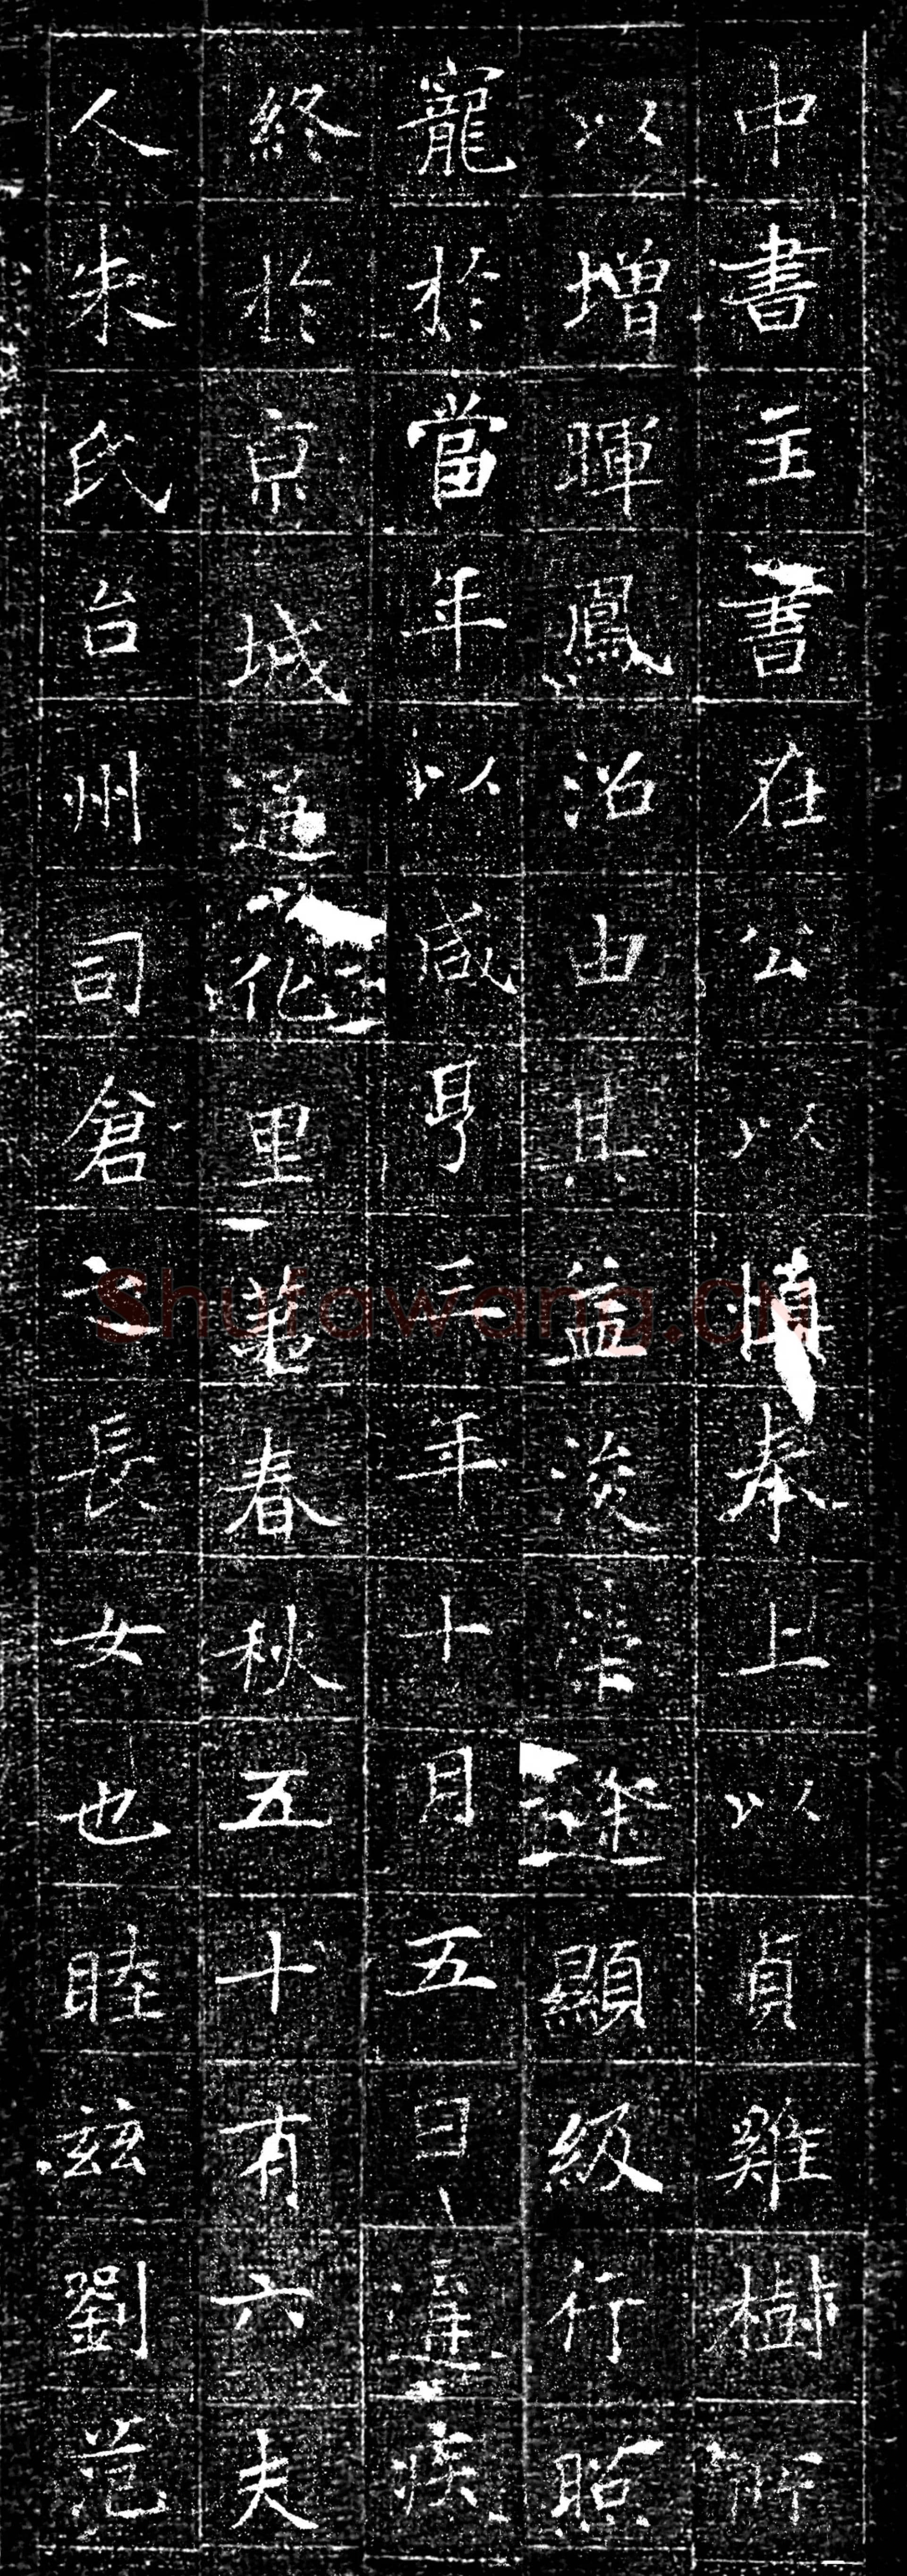 中書主書在公以慎奉上以貞雞樹所
以增暉鳳沼由其益浚顯級行照
寵於當年以咸亨三年十月五日遘疾
終於京城化里春秋五十有六夫
人朱氏台州司倉之長女也睦茲劉范
Shufawang.CN